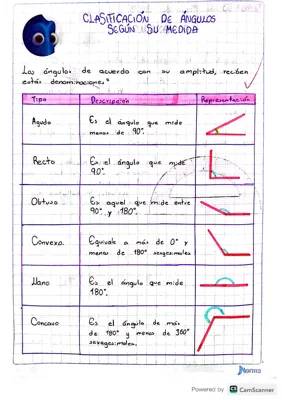 CLASIFICACIÓN DE ÁNGULOS
SEGÚN SU MEDIDA
Los ángulos de acuerdo con su amplitud, reciben
estas denominaciones.
Tipo Descripción Representación
Agudo Es el ángulo que mide
menos de 90°.
Recto Es el ángulo que mide
90°.
Obtuso Es aquel que mide entre
90° y 180°.
Convexo Equivale a más de 0° y
menos de 180° sexagesimales.
Llano Es el ángulo que mide
180°.
Concavo Es el ángulo de más
de 180° y menos de 360°
sexagesimales.
Norma
Powered by CS CamScanner